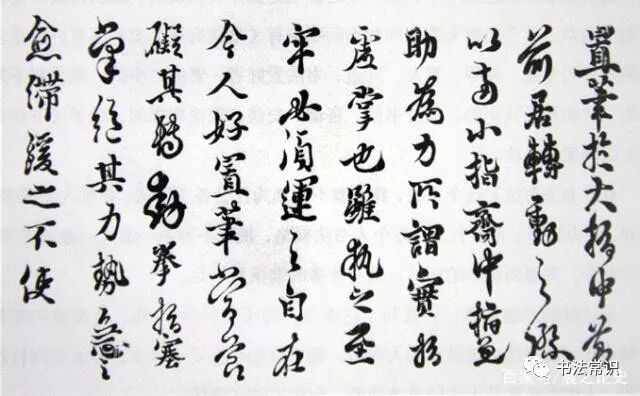 置筆於大指中節
前居轉動之際
以小指齊中指兼
助為力所謂實指
虛掌也雖執之至
牢必須運之自在
今人好置筆當
礙其轉動拳指塞
掌絕其力勢
愈滯緩之不使
书法常识
百家号/晨之论史